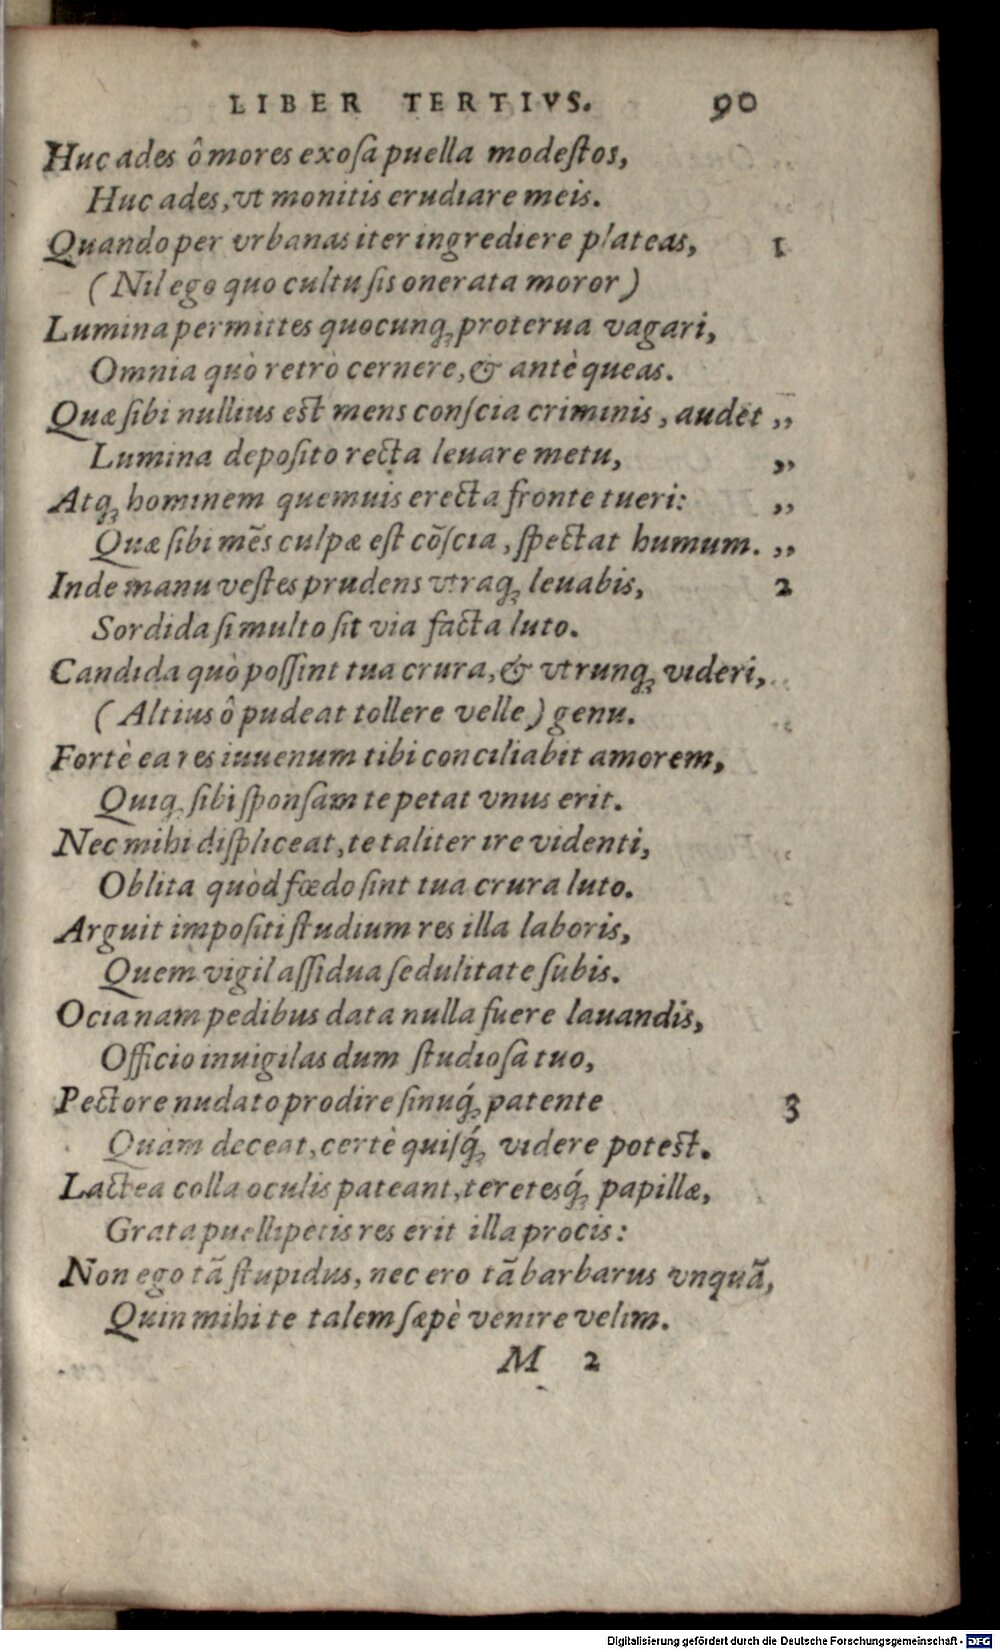 LIBER TERTIVS. 90
Huc ades ô mores exoſa puella modeſtos,
Huc ades, vt monitis erudiare meis.
Quando per vrbanas iter ingrediere plateas, 1
(Nil ego quo cultu ſis onerata moror)
Lumina permittes quocunq́; proterua vagari,
Omnia quò retrò cernere, & antè queas.
Quæ ſibi nullius eſt mens conſcia criminis, audet ,,
Lumina depoſito recta leuare metu, ,,
Atq; hominem quemuis erecta fronte tueri: ,,
Quæ ſibi mẽs culpæ eſt cõſcia, ſpectat humum. ,,
Inde manu veſtes prudens vtraq; leuabis, 2
Sordida ſi multo ſit via facta luto.
Candida quò poſſint tua crura, & vtrunq; videri,
(Altius ô pudeat tollere velle) genu.
Fortè ea res iuuenum tibi conciliabit amorem,
Quiq; ſibi ſponſam te petat vnus erit.
Nec mihi diſpliceat, te taliter ire videnti,
Oblita quòd fœdo ſint tua crura luto.
Arguit impoſiti ſtudium res illa laboris,
Quem vigil aſſidua ſedulitate ſubis.
Ocia nam pedibus data nulla fuere lauandis,
Officio inuigilas dum ſtudioſa tuo,
Pectore nudato prodire ſinuq́; patente 3
Quàm deceat, certè quiſq́; videre poteſt.
Lactea colla oculis pateant, teretesq́; papillæ,
Grata puellipetis res erit illa procis:
Non ego tã ſtupidus, nec ero tã barbarus vnquã,
Quin mihi te talem ſæpè venire velim.
M 2
Digitalisierung gefördert durch die Deutsche Forschungsgemeinschaft - DFG